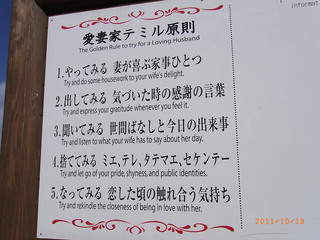 愛妻家テミル原則
The Golden Rule to try for a Loving Husband
1.やってみる 妻が喜ぶ家事ひとつ
Try and do some housework to your wife's delight.
2.出してみる 気づいた時の感謝の言葉
Try and express your gratitude whenever you feel it.
3.聞いてみる 世間ばなしと今日の出来事
Try and listen to what your wife has to say about her day.
4.捨ててみる ミエ、テレ、タテマエ、セケンテー
Try and let go of your pride, shyness, and public identities.
5.なってみる 恋した頃の触れ合う気持ち
Try and rekindle the closeness of being in love with her.
informat